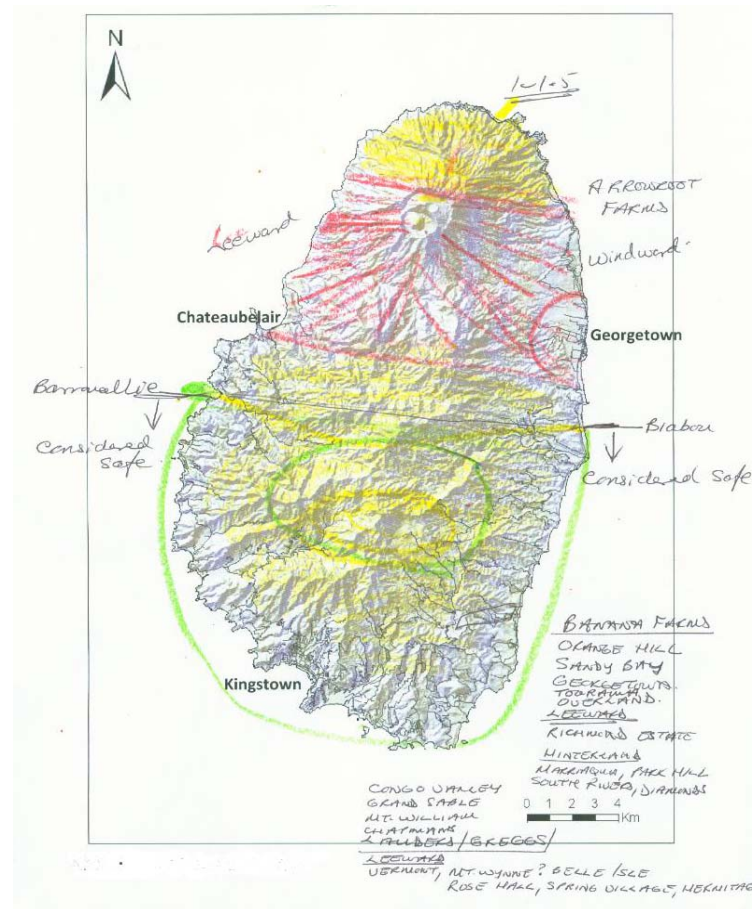 N
1-1.5
ARROWROOT
FARMS
Leeward
Windward
Chateaubelair
Georgetown
Barrouallie
Biabou
Considered
Safe
Considered Safe
BANANA FARMS
ORANGE HILL
SANDY BAY
GEORGETOWN.
OVERLAND.
LEEWARD
RICHMOND ESTATE
HINTERLAND
MARRIAQUA, PARK HILL
SOUTH RIVER, DIAMONDS
Kingstown
0 1 2 3 4
Km
CONGO VALLEY
GRAND SABLE
MT. WILLIAM
CHAPMANS
LAUDERS/GREGGS/
LEEWARD
VERMONT, MT. WYNNE? BELLE ISLE
ROSE HALL, SPRING VILLAGE, HERMITAGE